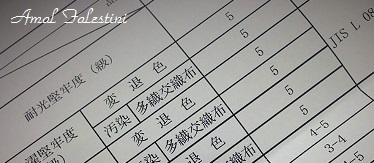 Amal Falestini
5
5
変退色 5
耐光堅牢度（級） 多繊交織布 5
変退色 5
汚染 多繊交織布 5
変退色 4-5
多繊交織布 3-4
濯堅牢度
JIS L 08